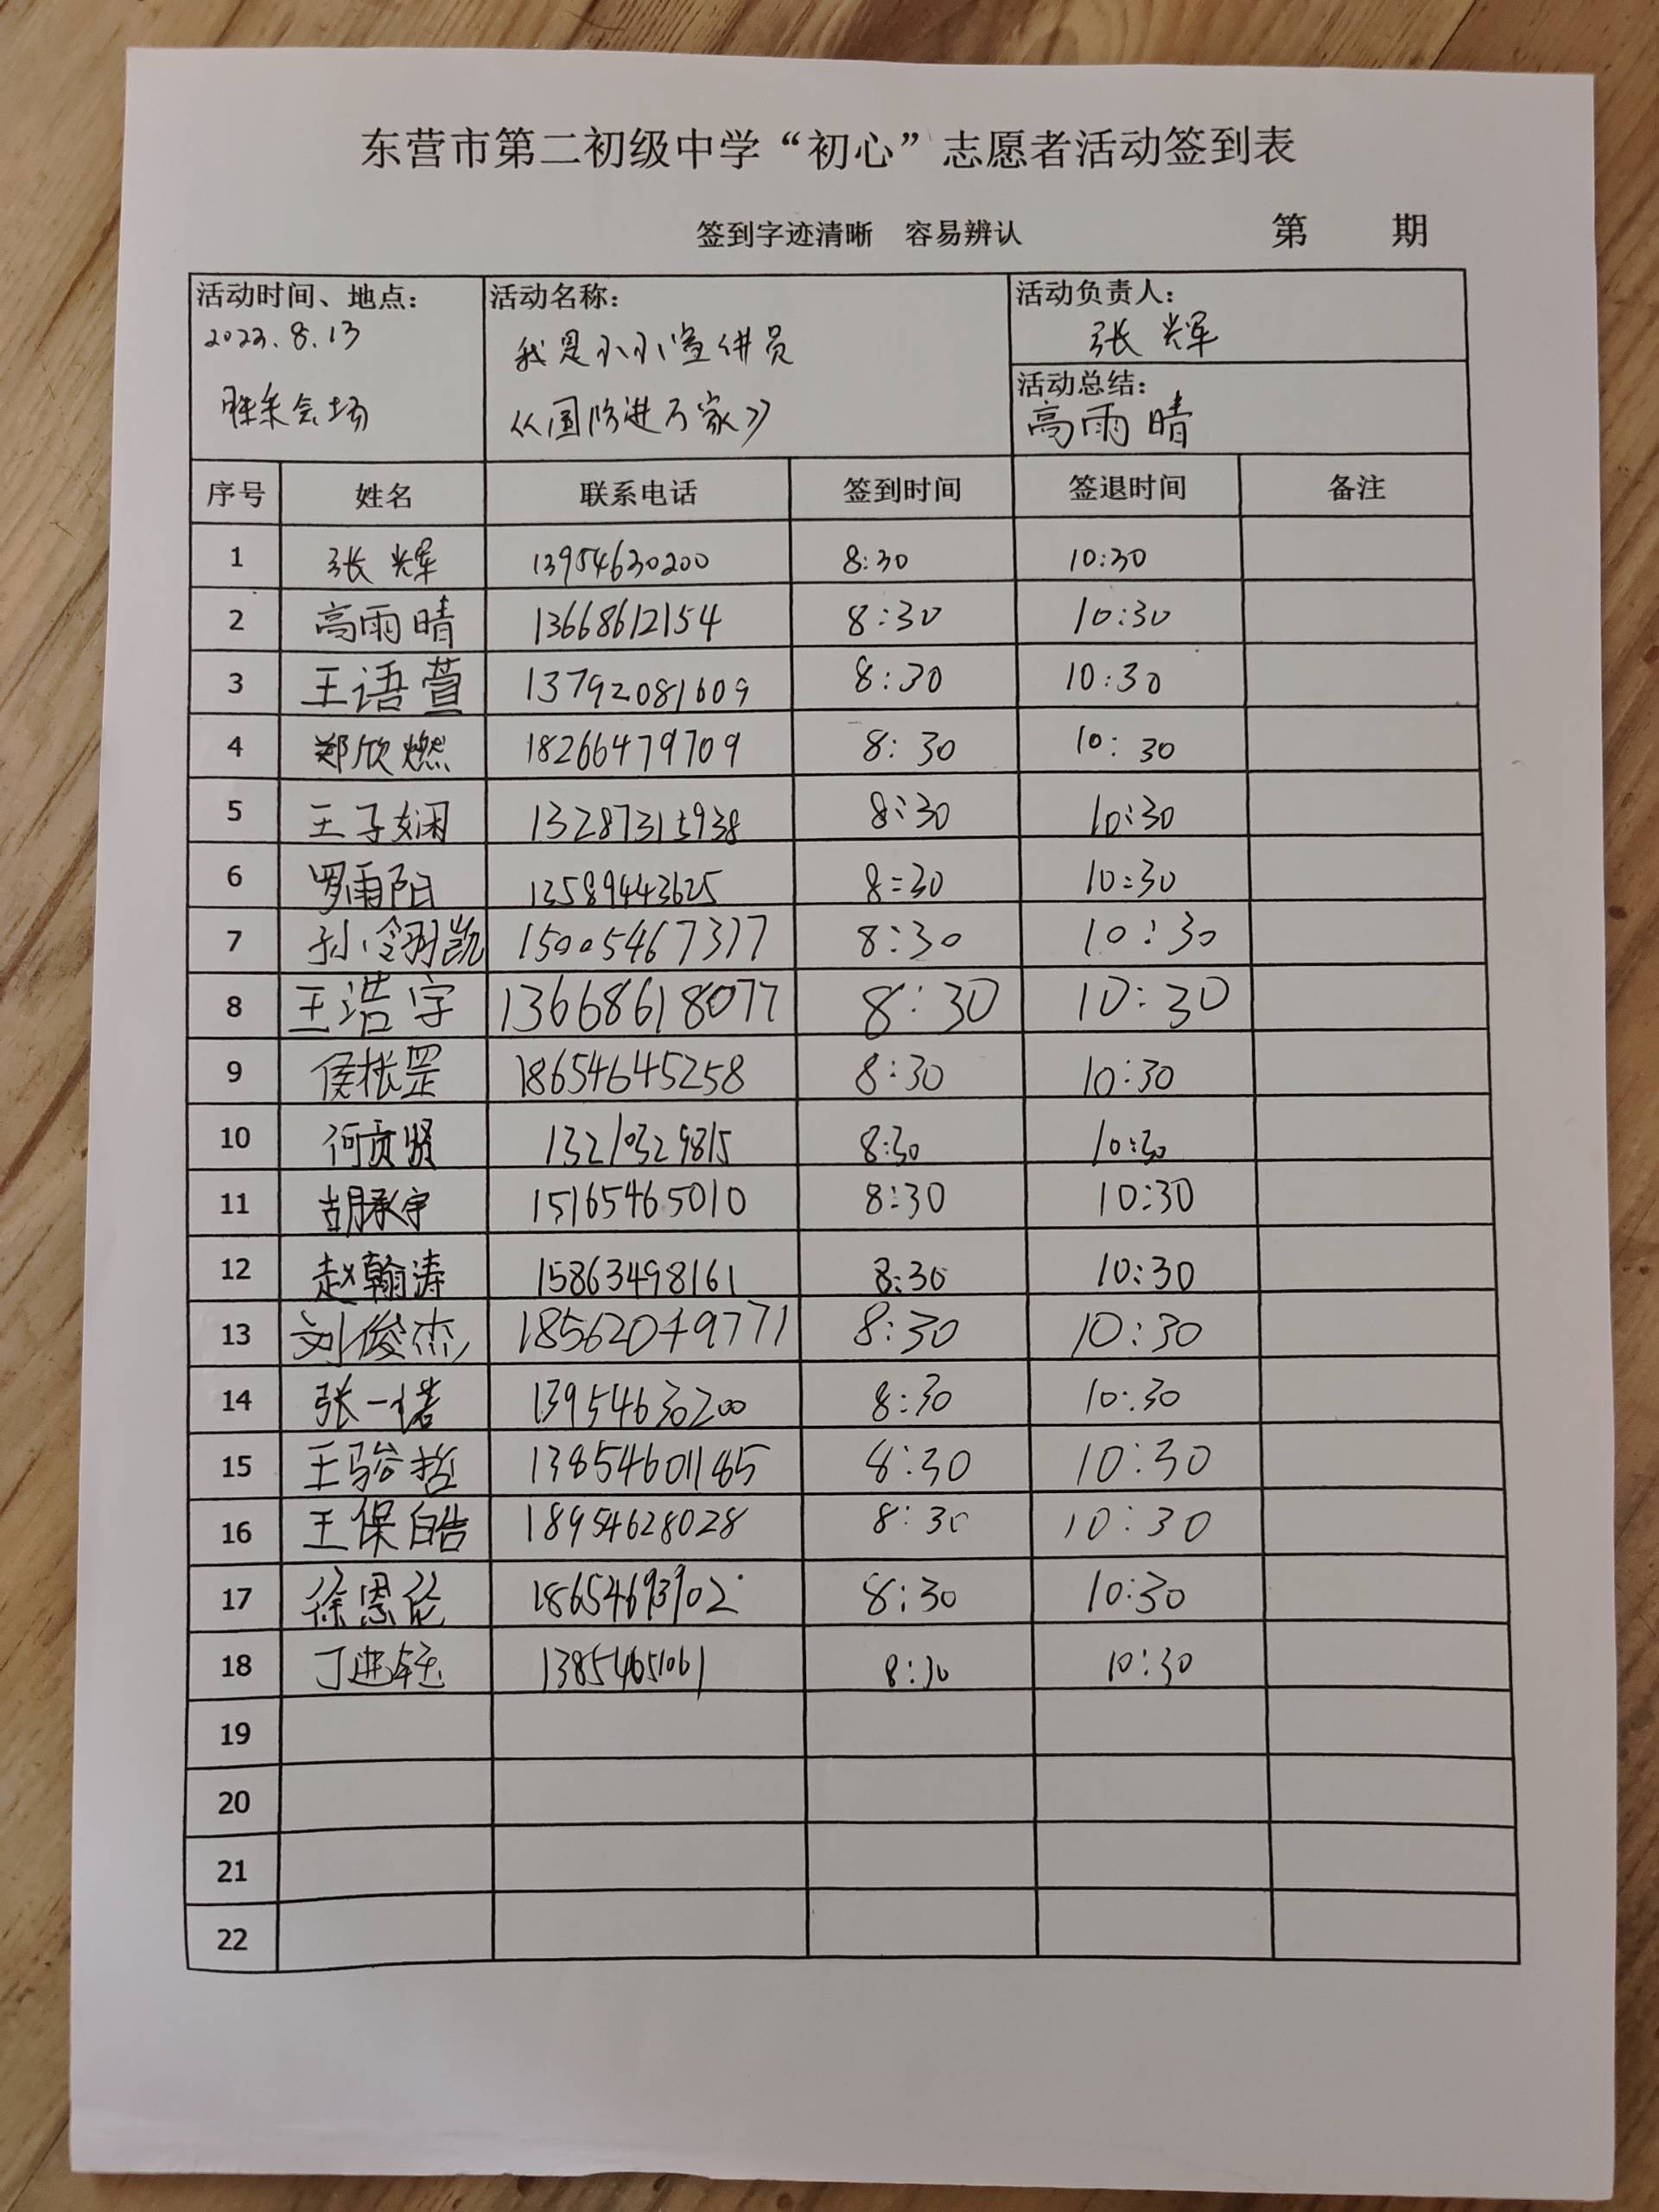 东营市第二初级中学“初心”志愿者活动签到表
签到字迹清晰 容易辨认 第 期
活动时间、地点： 活动名称： 活动负责人：
2023.8.13 我是小小宣讲员 张辉
会场 《国防进万家》 活动总结：
高雨晴
序号 姓名 联系电话 签到时间 签退时间 备注
1 张辉 13954630200 8:30 10:30
2 高雨晴 13668612154 8:30 10:30
3 王语萱 13792081609 8:30 10:30
4 郑欣燃 18266479709 8:30 10:30
5 王子娴 13287315938 8:30 10:30
6 罗雨阳 13589443625 8:30 10:30
7 孙翎凯 15005467377 8:30 10:30
8 王浩宇 13668618077 8:30 10:30
9 18654645258 8:30 10:30
10 何贡贤 13210329815 8:30 10:30
11 胡承宇 15165465010 8:30 10:30
12 赵翰涛 15863498161 8:30 10:30
13 刘俊杰 18562049771 8:30 10:30
14 张一诺 13954630200 8:30 10:30
15 王骏哲 13854601165 8:30 10:30
16 王保皓 18954628028 8:30 10:30
17 徐恩伦 18654693902 8:30 10:30
18 13854651061 8:30 10:30
19
20
21
22